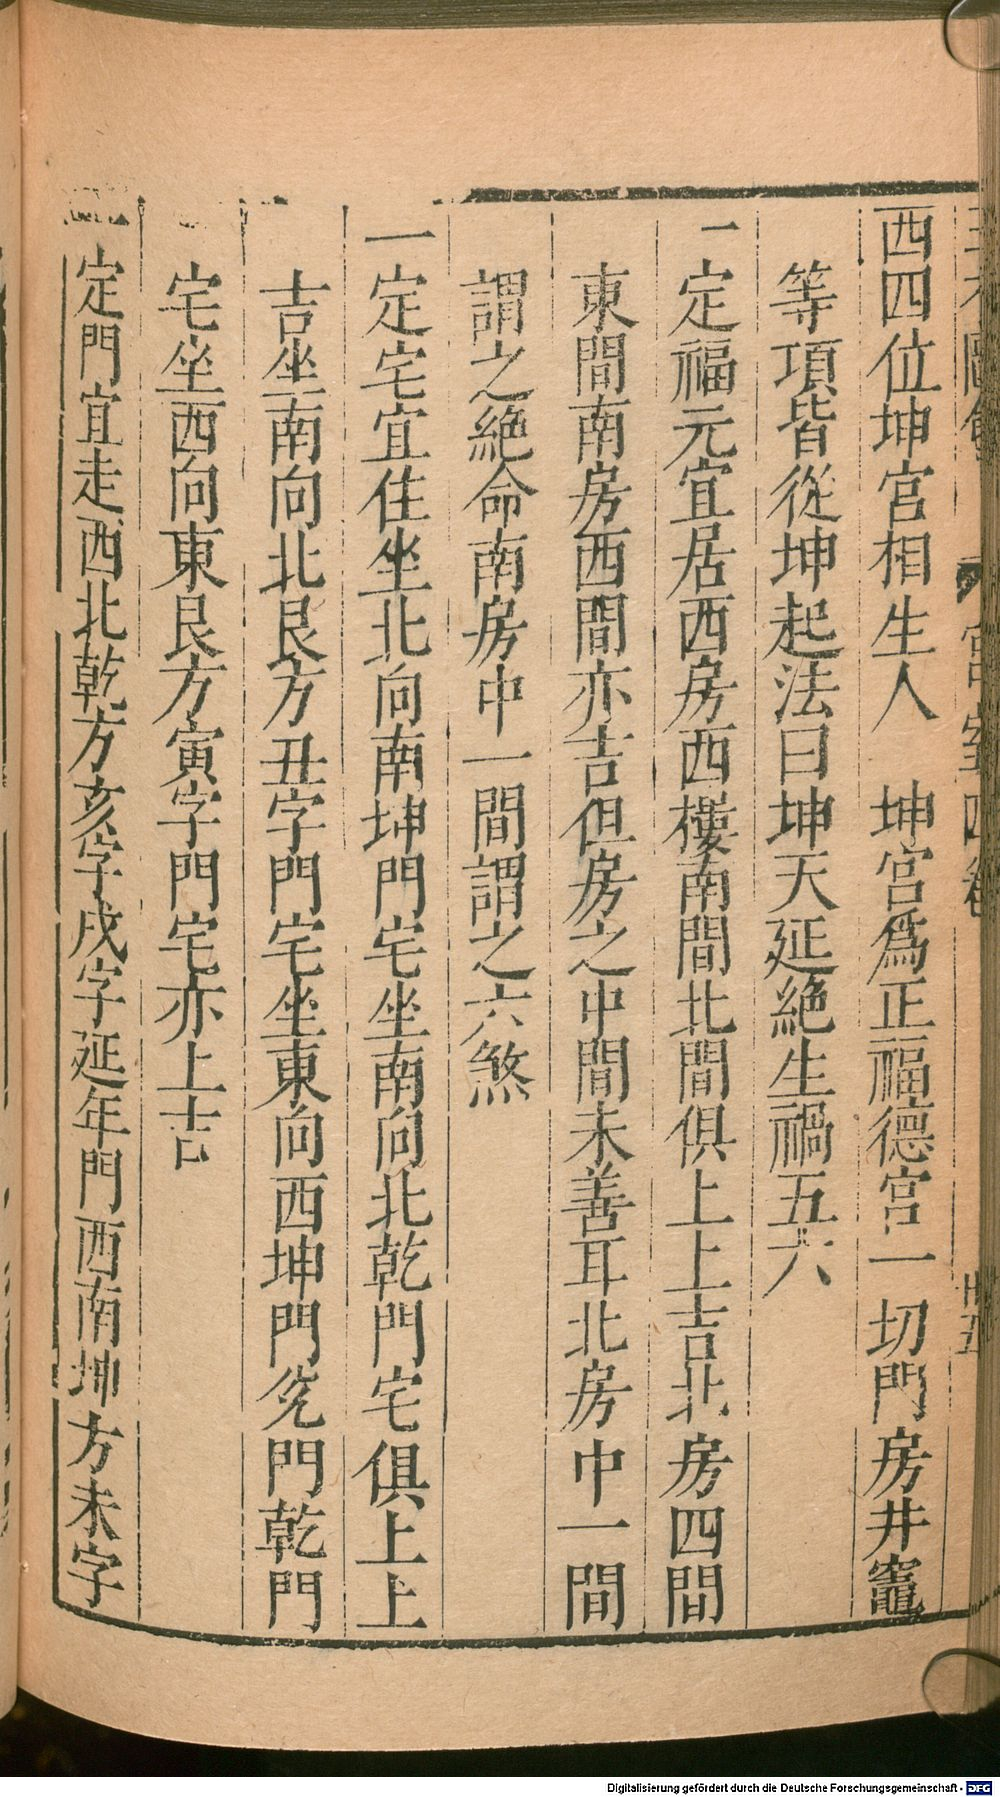 西四位坤宮相生人　坤宮爲正福德宮一切門房井竈
等項皆從坤起法曰坤天延絶生禍五六
一定福元宜居西房西樓南間北間俱上上吉北房四間
東間南房西間亦吉但房之中間未善耳北房中一間
謂之絶命南房中一間謂之六煞
一定宅宜住坐北向南坤門宅坐南向北乾門宅俱上上
吉坐南向北艮方丑字門宅坐東向西坤門兊門乾門
宅坐西向東艮方寅字門宅亦上吉
一定門宜走西北乾方亥字戌字延年門西南坤方未字
宮室四卷
卅五
Digitalisierung gefördert durch die Deutsche Forschungsgemeinschaft - DFG